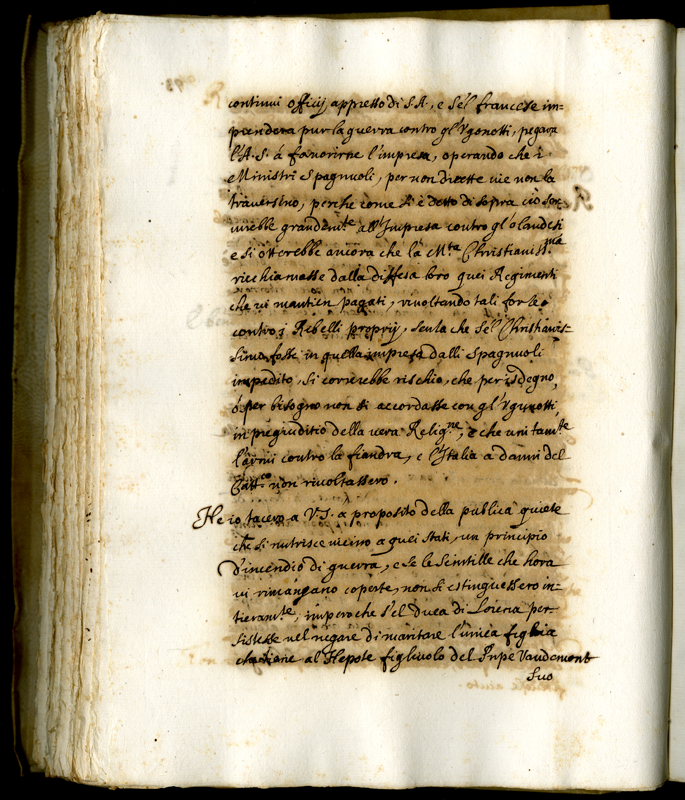 continui officij appresso di S.A., e se'l francese im=
prendera pur la guerra contro gl'Vgonotti, pregara
l'A.S. á fauorirne l'impresa, operando che i
Ministri Spagnuoli, per non dirette uie non la
trauersino, perche come si è detto di sopra ciò ser=
uirebbe grandem.te all'Impresa contro gl'olandesi
e si otterebbe ancora che la M.ta Christianiss.ma
richiamasse dalla diffesa loro quei Regimenti
che ui mantien pagati, riuoltando tali forze
contro i Ribelli proprij, senza che se'l Christianis=
simo fosse in quella impresa dalli Spagnuoli
impedito, si correrebbe rischio, che per isdegno,
ó per bisogno non si accordasse con gl'Vgunotti,
in pregiuditio della uera Relig.ne, e che unitam.te
l'armi contro la fiandra, e l'Italia a danni del
Catt.co non riuoltassero.
Ne io tacero a V.S. a proposito della publica quiete
che si nutrisce uicino a quei stati, un principio
d'incendio di guerra, e se le scintille che hora
ui rimangano coperte, non si estinguessero in=
tieram.te, impero che s'el Duca di Lorena per=
sistesse nel negare di maritare l'unica figlia
che tiene al Nepote figliuolo del Pnpe Vaudemont
suo